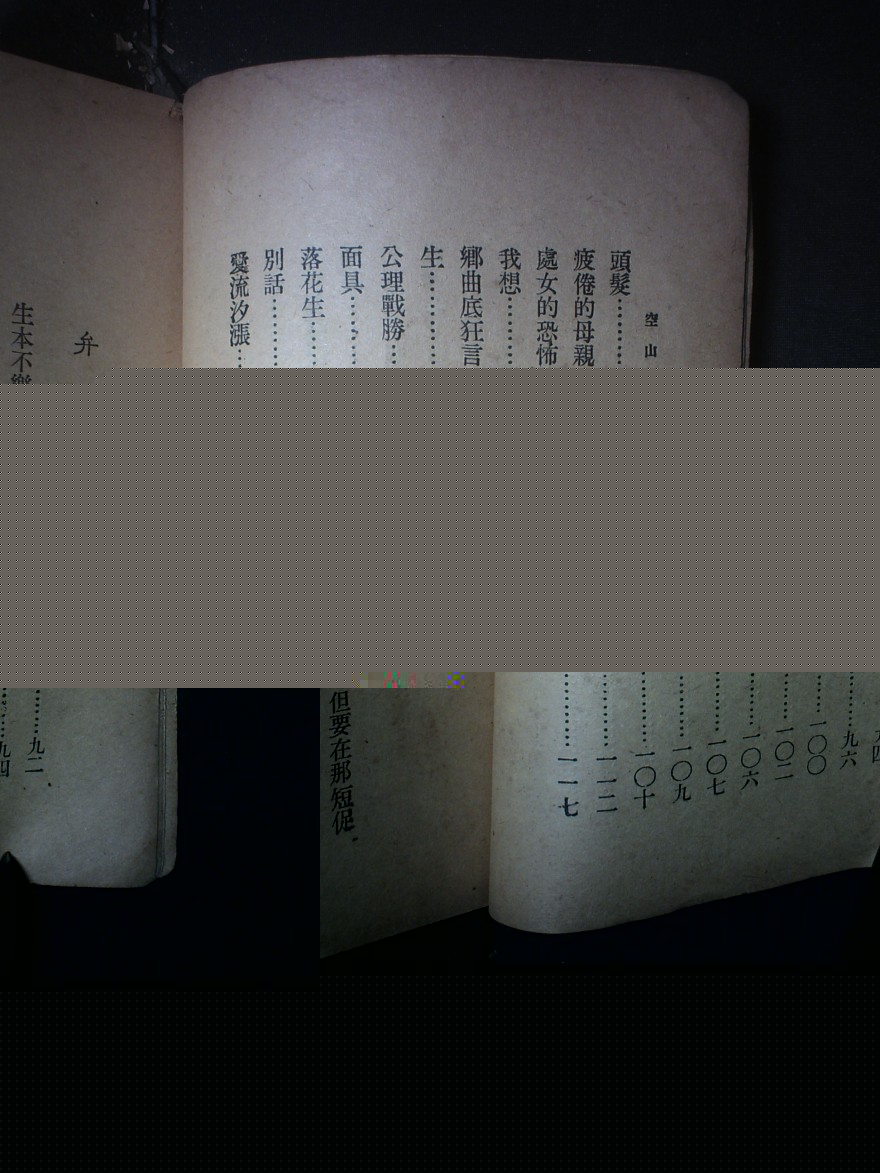 空山
頭髮…………九二
疲倦的母親…………九四
處女的恐怖…………九六
我想…………一〇〇
鄉曲底狂言…………一〇二
生…………一〇六
公理戰勝…………一〇七
面具…………一〇九
落花生…………一〇十
別話…………一一二
愛流汐漲…………一一七
弁
生本不樂
但要在那短促